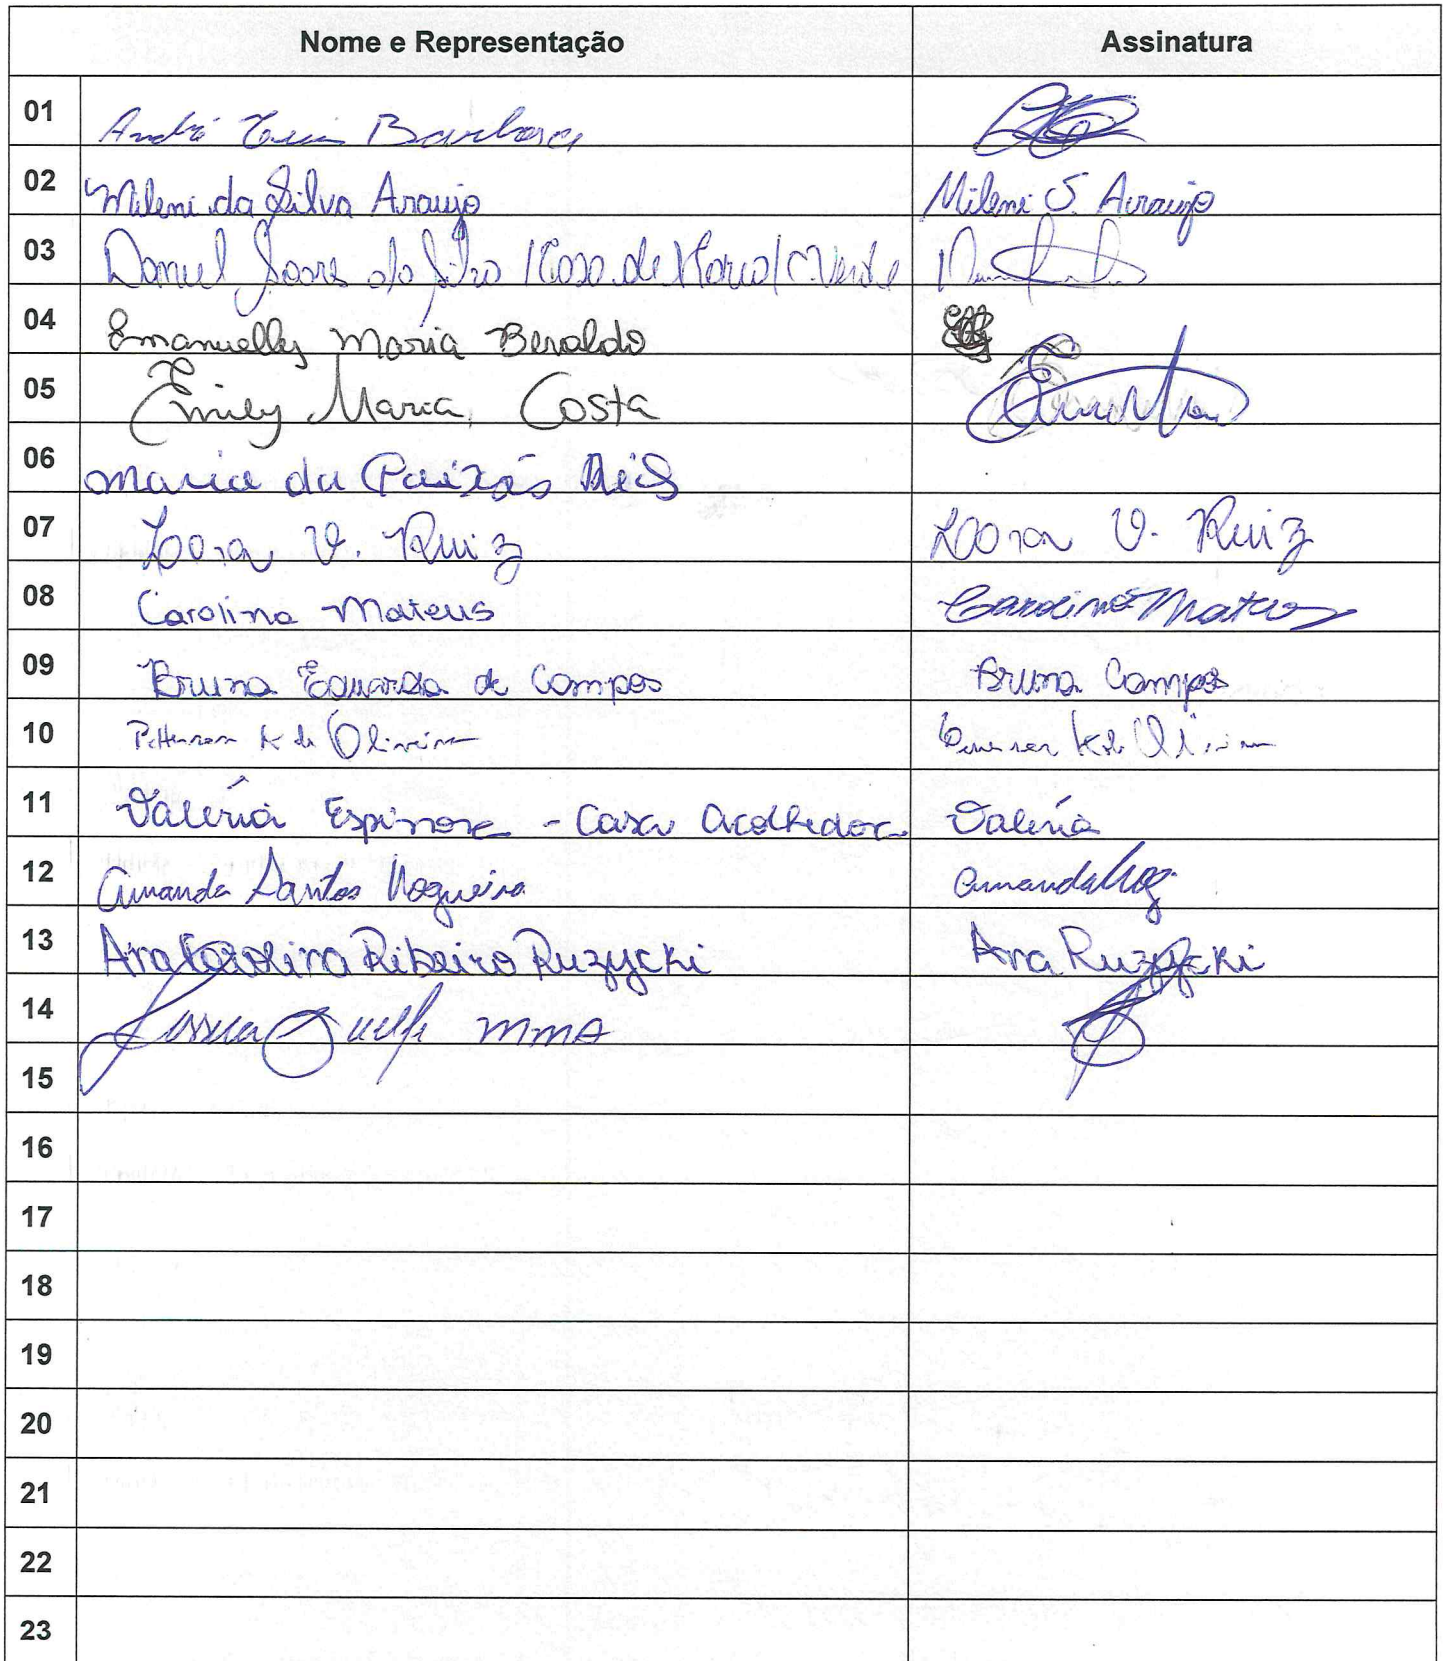 Nome e Representação Assinatura
01 André Luis Barbosa
02 Mileni da Silva Araujo Mileni S. Araujo
03 Daniel Soares da Silva / Casa de Maria / C. Verde
04 Emanuelly Maria Beraldo
05 Emily Maria Costa
06 Maria da Paixão Reis
07 Lora V. Ruiz Lora V. Ruiz
08 Carolina Mateus Carolina Mateus
09 Bruna Eduarda de Campos Bruna Campos
10 K de Oliveira K de Oliveira
11 Valéria Espinosa - Casa Acolhedora Valéria
12 Amanda Santos Nogueira Amanda Nog
13 Ana Carolina Ribeiro Ruzycki Ana Ruzycki
14 MMA
15
16
17
18
19
20
21
22
23